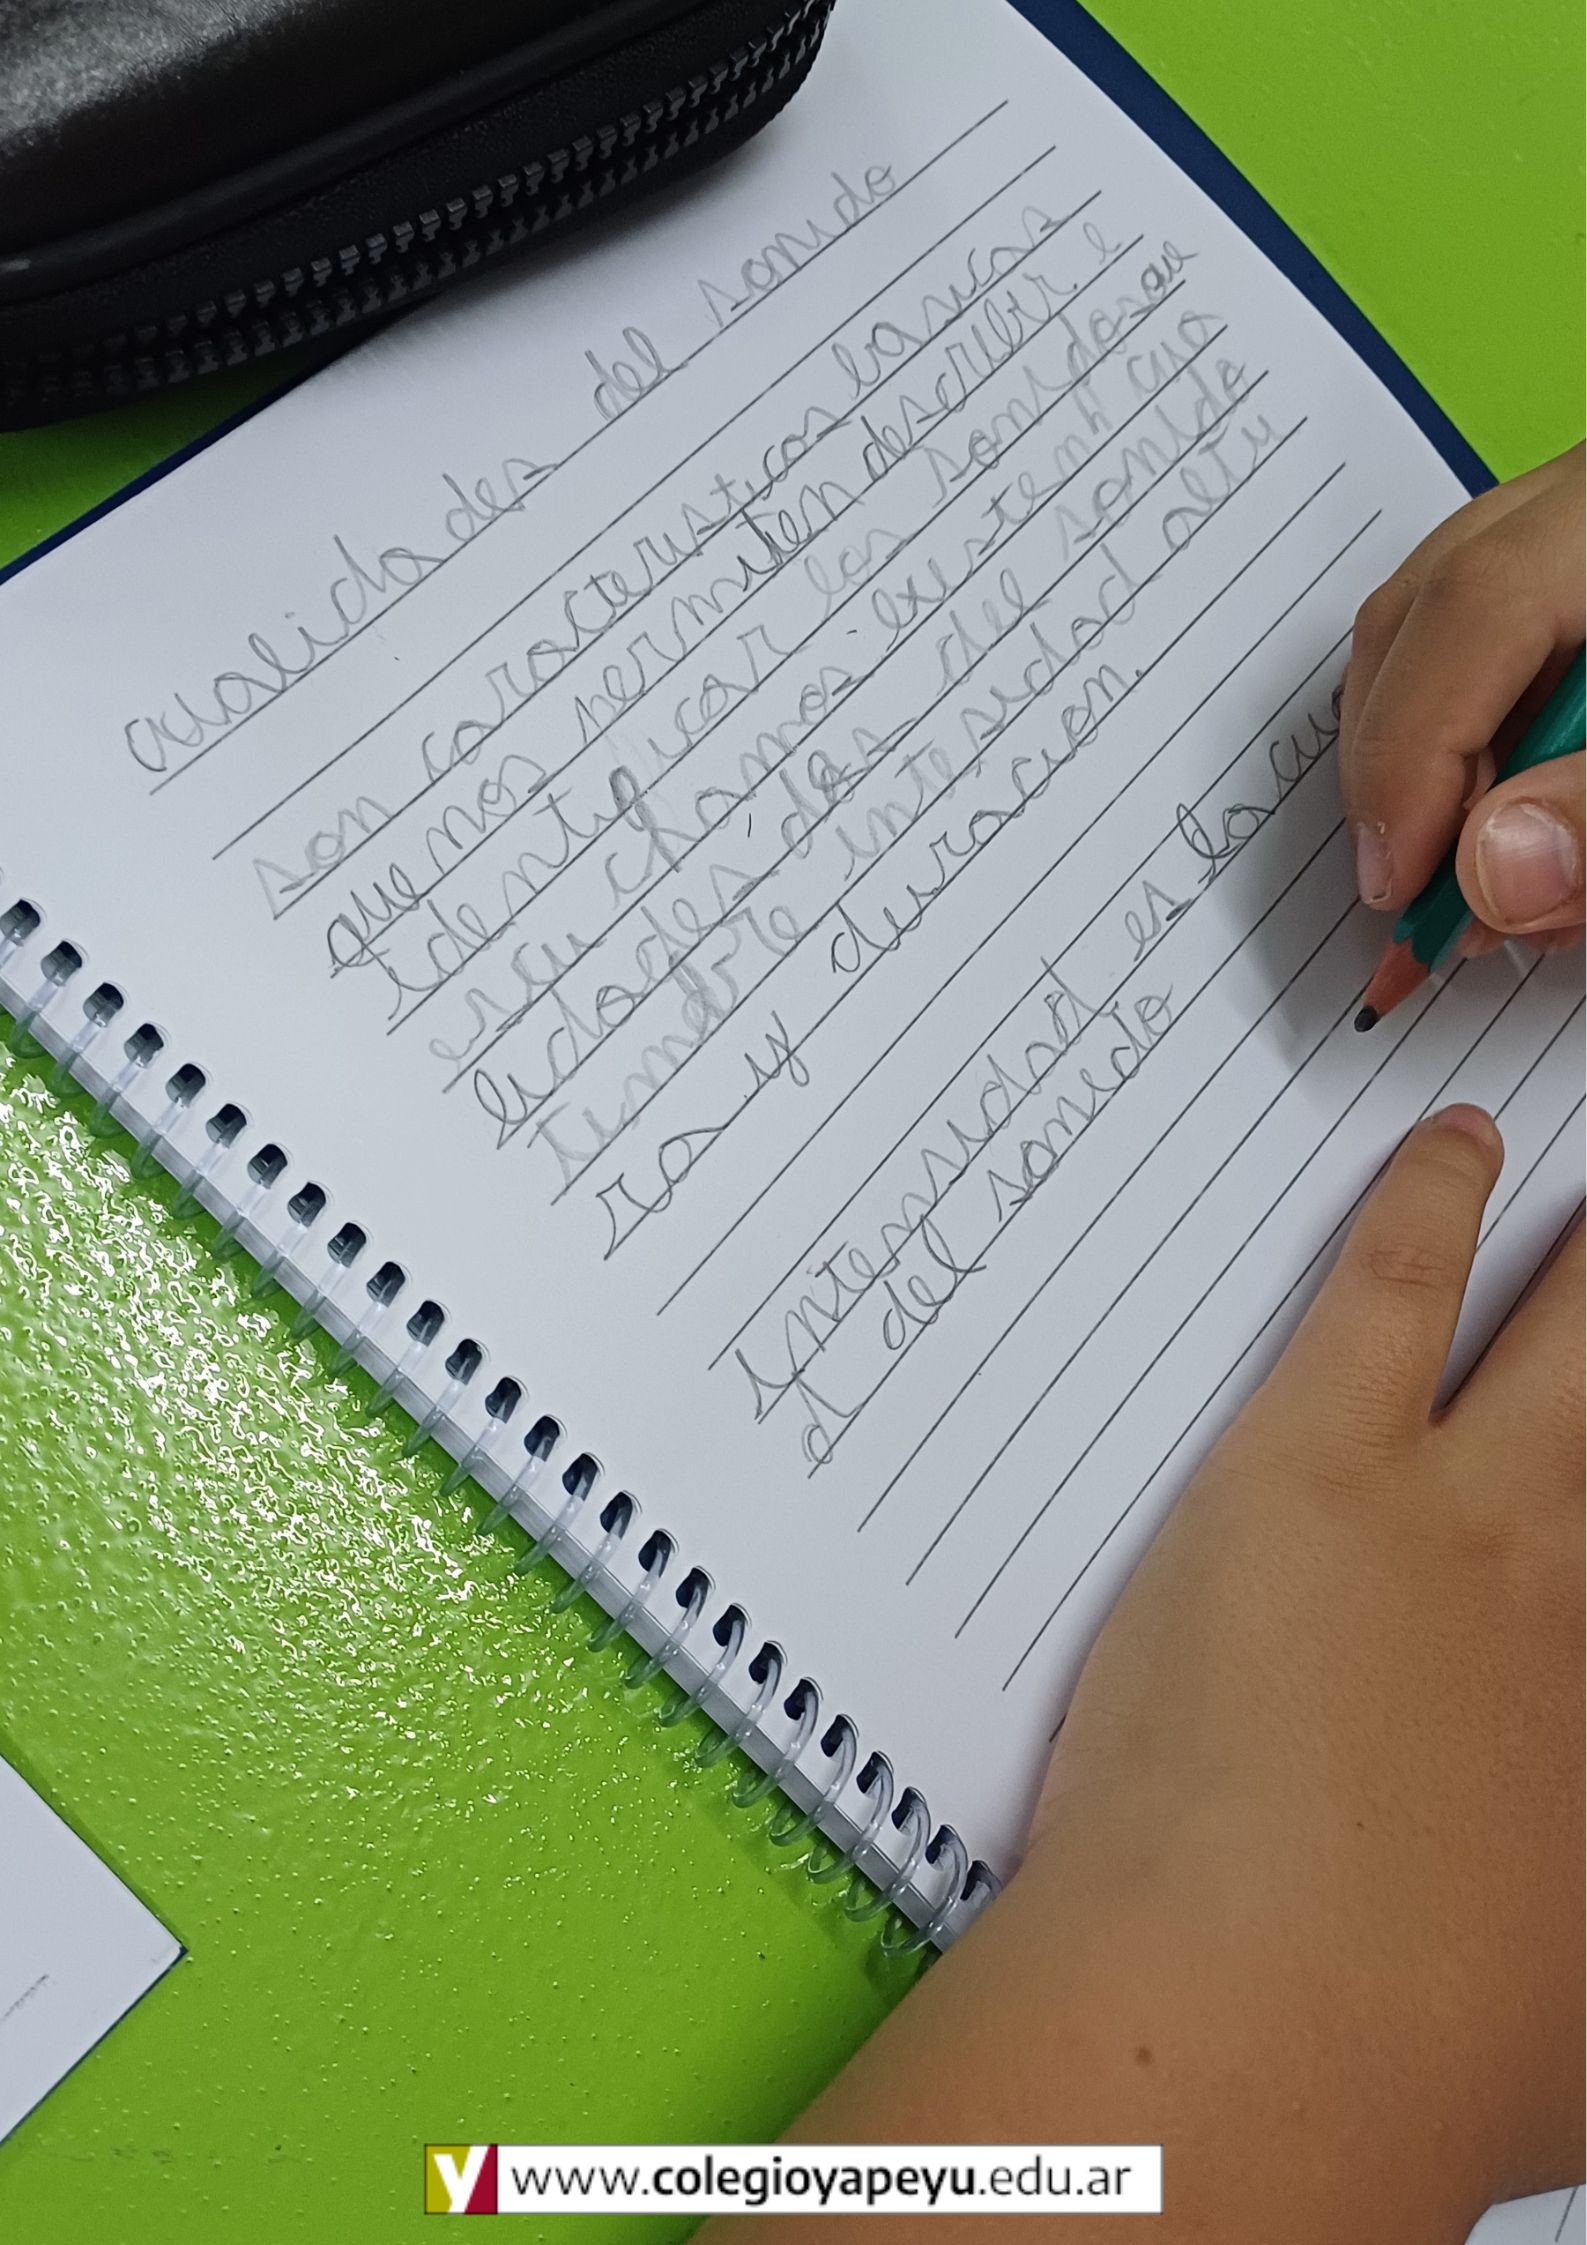 cualidades del sonido
son caracteristicas basicas
que nos permiten describir e
identificar los sonidos que
escuchamos. existenh cua
lidades des del sonido
timbre intesidad altu
ra y duracion.
intensidad es la cua
d del sonido
www.colegioyapeyu.edu.ar